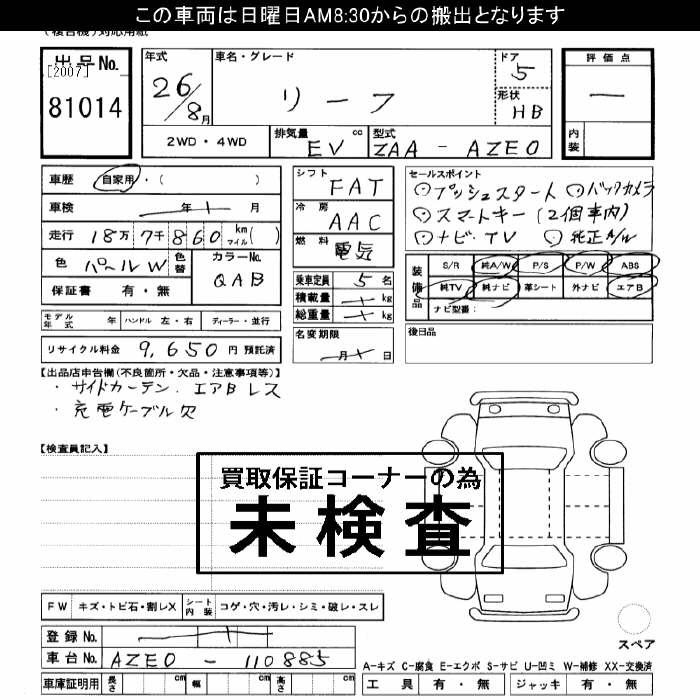 この車両は日曜日AM8:30からの搬出となります
(複合機)対応用紙
出品No.
[2007]
81014
年式
26/8月
車名・グレード
リーフ
ドア
5
形状
HB
評価点
一
内装
2WD・4WD
排気量 cc
EV
型式
ZAA - AZE0
車歴 自家用・( )
車検 年 月
走行 18万7千860 km マイル( )
色 パールW 色替
カラーNo.
QAB
保証書 有・無
モデル年式 年 ハンドル 左・右 ディーラー・並行
リサイクル料金 9,650 円 預託済
シフト
FAT
冷房
AAC
燃料
電気
乗車定員 5 名
積載量 kg
総重量 kg
名変期限
月 日
セールスポイント
プッシュスタート バックカメラ
スマートキー(2個車内)
ナビ・TV 純正A/W
装備品
S/R 純A/W P/S P/W ABS
純TV 純ナビ 革シート 外ナビ エアB
ナビ型番:
後日品
【出品店申告欄(不良箇所・欠品・注意事項等)】
・サイドカーテン.エアBレス
・充電ケーブル欠
【検査員記入】
買取保証コーナーの為
未検査
FW キズ・トビ石・割レX シート内装 コゲ・穴・汚レ・シミ・破レ・スレ
登録No.
車台No. AZE0 - 110885
車庫証明用 長さ cm 幅 cm 高さ cm
スペア
A-キズ C-腐食 E-エクボ S-サビ U-凹ミ W-補修 XX-交換済
工具 有・無 ジャッキ 有・無